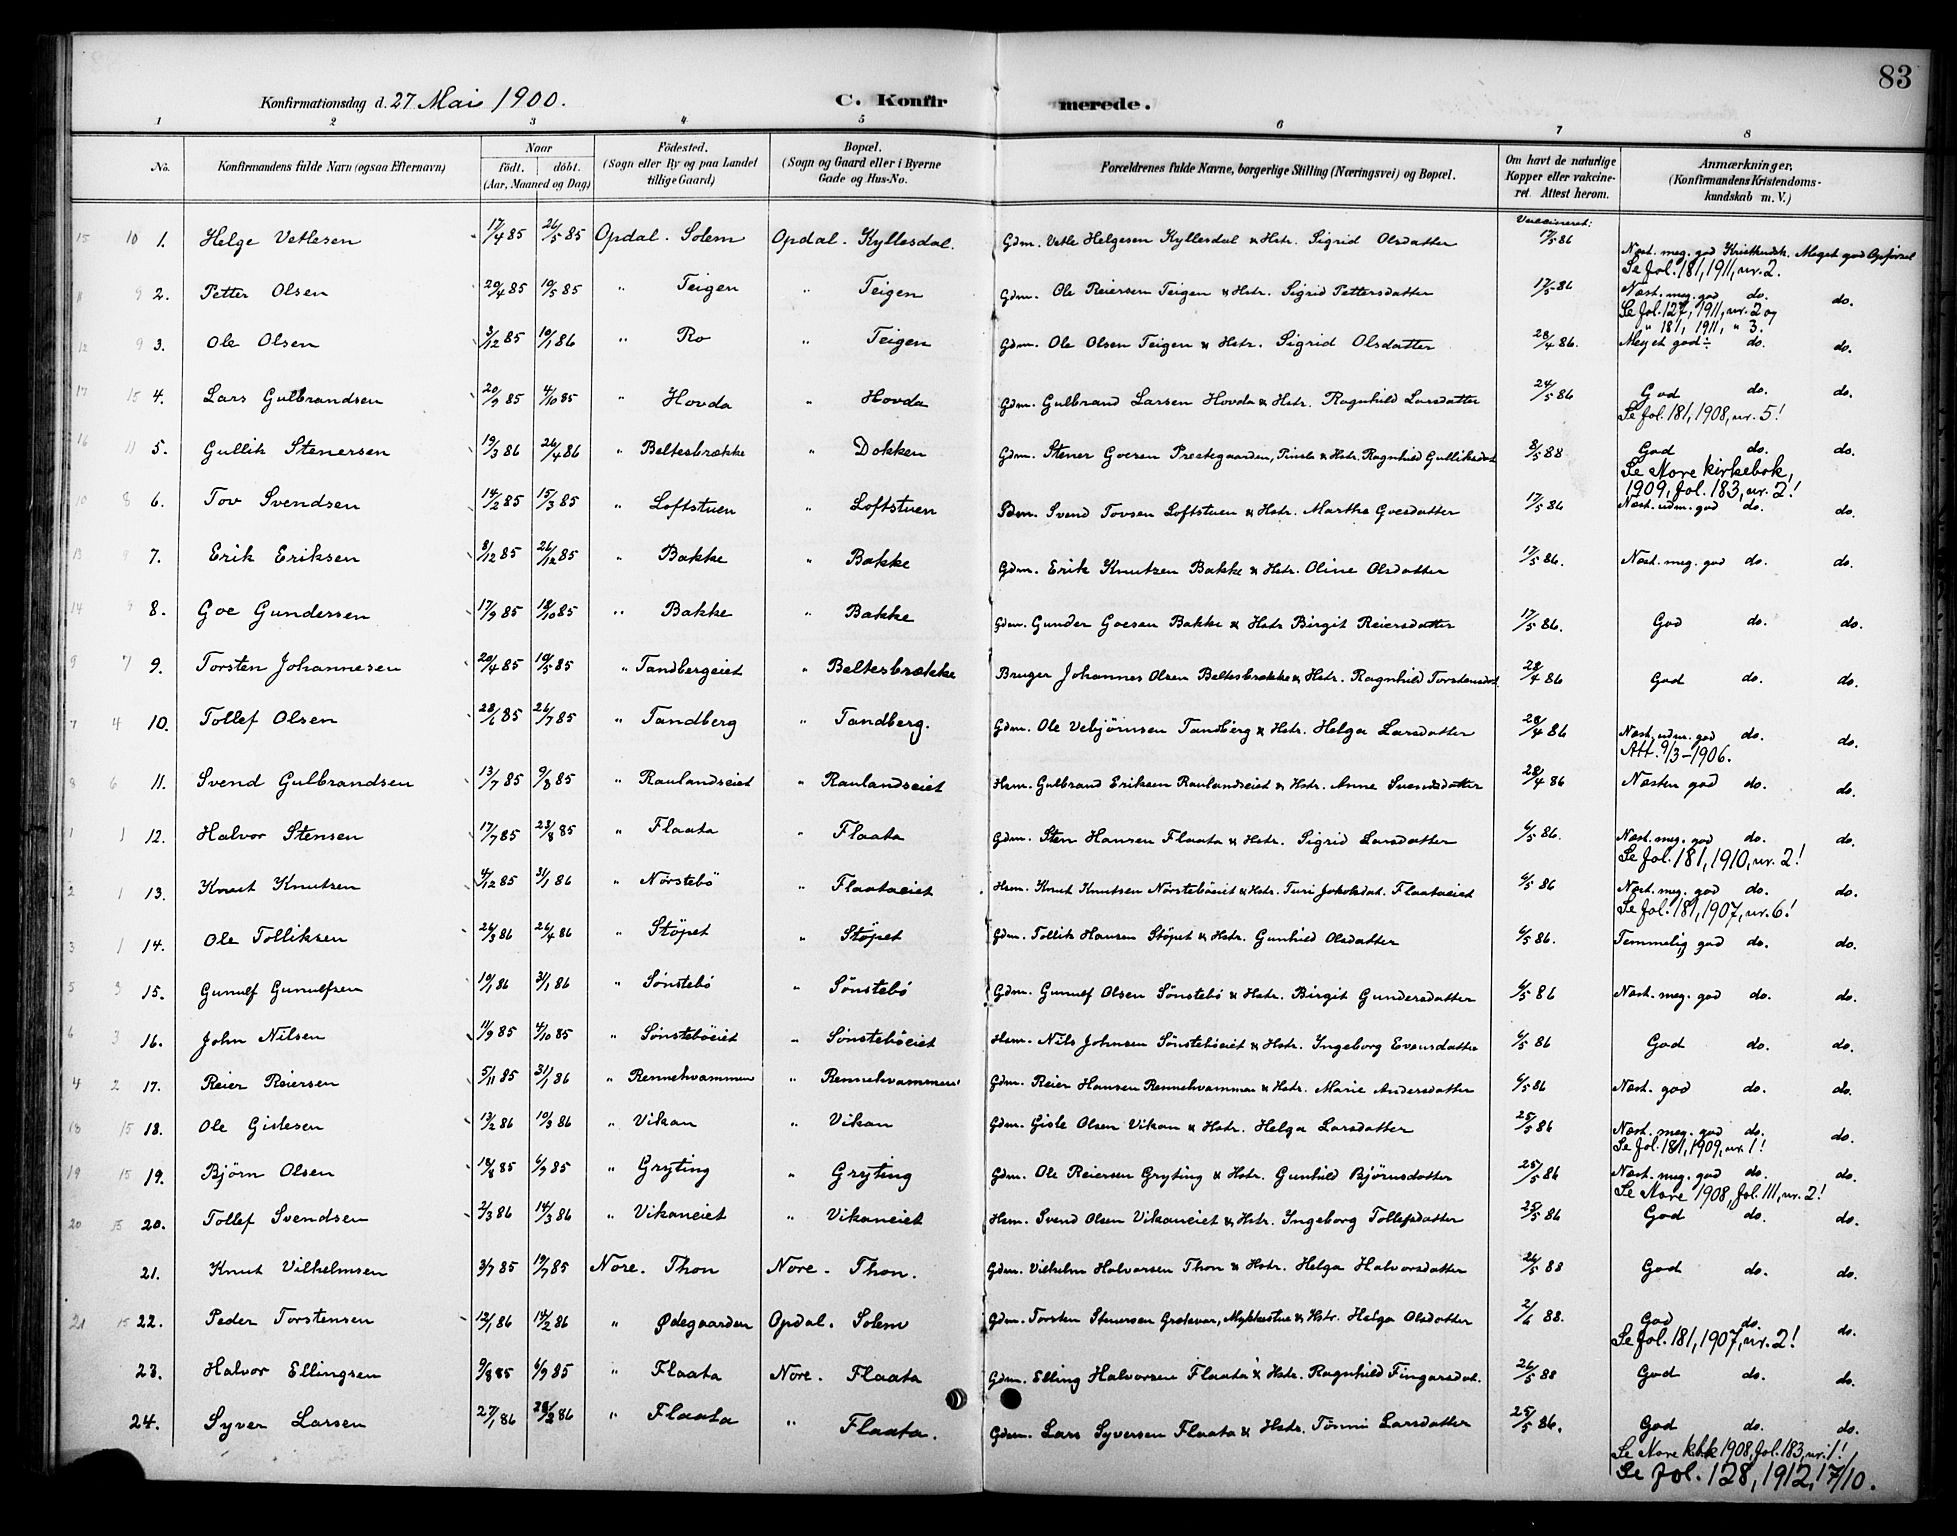 83
Konfirmationsdag d. 27 Mai 1900. C. Konfirmerede.
1 2 3 4 5 6 7 8
No. Konfirmandens fulde Navn (ogsaa Efternavn) Naar født. døbt. (Aar, Maaned og Dag) Fødested. (Sogn eller By og paa Landet tillige Gaard) Bopæl. (Sogn og Gaard eller i Byerne Gade og Hus-No. Forældrenes fulde Navne, borgerlige Stilling (Næringsvei) og Bopæl. Om havt de naturlige Kopper eller vakcineret. Attest herom. Anmærkninger, (Konfirmandens Kristendomskundskab m. V.)
Vaccineret:
15 10 1. Helge Vetlesen 17/4 85 26/5 85 Opdal. Solem Opdal. Kyllesdal. Gdm. Vetle Helgesen Kyllesdal & Hstr. Sigrid Olsdatter 17/5 86 Næst. meg. god Kristkundsk. Meget god Opførsel
Se fol. 181, 1911, nr. 2.
9 2. Petter Olsen 20/4 85 10/5 85 " Teigen " Teigen Gdm. Ole Reiersen Teigen & Hstr. Sigrid Pettersdatter 17/5 86 Næst. meg. god do. do.
Se fol. 127, 1911, nr. 2 og
" " 181, 1911, " 3.
12 9 3. Ole Olsen 3/12 85 10/1 86 " Ro " Teigen Gdm. Ole Olsen Teigen & Hstr. Sigrid Olsdatter 28/4 86. Meget god ÷ do. do.
17 15 4. Lars Gulbrandsen 20/9 85 4/10 85 " Hovda " Hovda Gdm. Gulbrand Larsen Hovda & Hstr. Ragnhild Larsdatter 24/5 86 God do. do.
Se fol. 181, 1908, nr. 5!
16 11 5. Gullik Stenersen 19/3 86 26/4 86 " Beltesbrække " Dokken Gdm. Stener Goesen Prestegaarden, & Hstr. Ragnhild Gulliksdat 8/5 88 God do. do.
Se Nore kirkebok,
1909, fol. 183, nr. 2!
10 8 6. Tov Svendsen 14/2 85 15/3 85 " Loftstuen " Loftstuen Gdm. Svend Tovsen Loftstuen & Hstr. Martha Goesdatter 17/5 86 Næst. udm. god do. do.
13 9 7. Erik Eriksen 8/12 85 26/12 85 " Bakke " Bakke Gdm. Erik Knutzen Bakke & Hstr. Oline Olsdatter 17/5 86. Næst. meg. god do. do.
14 9 8. Goe Gundersen 17/9 85 18/10 85 " Bakke " Bakke Gdm. Gunder Goesen Bakke & Hstr Birgit Reiersdatter 17/5 86. God do. do.
9 7 9. Torsten Johannesen 20/4 85 10/5 85 " Tandbergeiet " Beltesbrække Bruger Johannes Olsen Beltesbrække & Hstr. Ragnhild Torstensdat. 28/4 86 God do. do.
7 4 10. Tollef Olsen 28/6 85 26/7 85 " Tandberg " Tandberg. Gdm. Ole Vebjørnsen Tandberg & Hstr. Helga Larsdatter 28/4 86 Næst. udm. god do. do.
Att. 9/3-1906.
8 6 11. Svend Gulbrandsen 13/7 85 9/8 85 " Raulandseiet " Raulandseiet Hsm. Gulbrand Eriksen Raulandseiet & Hstr. Anne Svensdatter 28/4 86 Næsten god do. do.
1 1 12. Halvor Stensen 17/7 85 23/8 85 " Flaata " Flaata Gdm. Sten Hansen Flaata & Hstr. Sigrid Larsdatter 6/5 86. Næst. meg. god do. do.
Se fol. 181, 1910, nr. 2!
2 1 13. Knut Knutsen 4/12 85 31/1 86 " Nørstebö " Flaataeiet Hsm. Knut Knutsen Nørstebøeiet & Hstr. Turi Jakobsdat. Flaataeiet 6/5 86 Næst. meg. god do. do.
Se fol. 181, 1907, nr. 6!
3 1 14. Ole Tolliksen 26/3 86 26/4 86 " Støpet " Støpet Gdm. Tollik Hansen Støpet & Hstr. Gunhild Olsdatter 6/5 86. Temmelig god do. do.
5 3 15. Gunulf Gunulfsen 10/1 86 31/1 86 " Sønstebø " Sønstebø Gdm. Gunulf Olsen Sønstebø & Hstr. Birgit Gundersdatter 6/5 86 Næst. meg. god do. do.
6 3 16. John Nilsen 11/9 85 4/10 85 " Sønstebøeiet " Sønstebøeiet Hsm. Nils Johnsen Sønstebøeiet & Hstr. Ingeborg Evensdatter 6/5 86 God do. do.
4 2 17. Reier Reiersen 5/11 85 31/1 86 " Rennehvammen " Rennehvammen Gdm. Reier Hansen Rennehvammen & Hstr. Marie Andersdatter 6/5 86 Næst. god do. do.
18 15 18. Ole Gislesen 13/2 86 10/3 86 " Vikan " Vikan Gdm. Gisle Olsen Vikan & Hstr. Helga Larsdatter 25/5 86 Næst. meg. god do. do.
Se fol. 181, 1909, nr. 1!
19 15 19. Bjørn Olsen 19/8 85 6/9 85 " Gryting " Gryting Gdm. Ole Reiersen Gryting & Hstr. Gunhild Bjørnsdatter 25/5 86 Næst. meg. god do. do.
Se Nore 1908, fol. 111, nr. 2!
20 15 20. Tollef Svendsen 2/3 86 14/3 86 " Vikaneiet " Vikaneiet Hsm. Svend Olsen Vikaneiet & Hstr. Ingeborg Tollefsdatter 25/5 86 God do. do.
21. Knut Vilhelmsen 3/7 85 19/7 85 Nore. Thon Nore. Thon. Gdm. Vilhelm Halvorsen Thon & Hstr. Helga Halvorsdatter 26/5 88 God do. do.
21 15 22. Peder Torstensen 12/1 86 14/2 86 " Ødegaarden Opdal. Solem Gdm. Torsten Stenersen & Hstr. Helga Olsdatter 2/6 88. God do. do.
Se fol. 181, 1907, nr. 2!
23. Halvor Ellingsen 9/8 85 6/9 85 " Flaata Nore. Flaata Gdm. Elling Halvorsen Flaata & Hstr. Ragnhild Fingarsdat. 26/5 88 God do. do.
24. Syver Larsen 27/1 86 28/2 86 " Flaata " Flaata. Gdm. Lars Syversen Flaata & Hstr. Tønni Larsdatter 25/5 86. God do. do.
Se Nore kbk 1908, fol. 183, nr. 1!
Se fol. 128, 1912, 17/10.